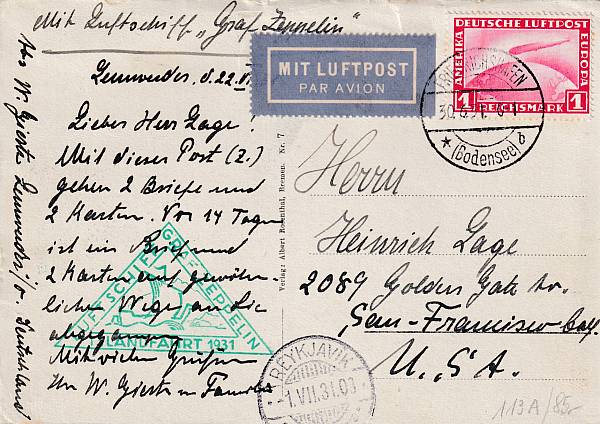 Mit Luftschiff „Graf Zeppelin"
MIT LUFTPOST
PAR AVION
DEUTSCHE LUFTPOST
AMERIKA
EUROPA
1 REICHSMARK 1
FRIEDRICHSHAFEN
(Bodensee)
Lemwerder, d. 22.
Lieber Herr Gage!
Mit dieser Post (Z.)
gehen 2 Briefe und
2 Karten. Vor 14 Tagen
ist ein Brief und
2 Karten auf gewöhn-
lichen Wege an Sie
abgegangen.
Mit vielen Grüßen
Ihr W. Gierke u Familie
Abs W. Gierke Lemwerder i/o Deutschland
LUFTSCHIFF GRAF ZEPPELIN
ISLANDFAHRT 1931
Verlag: Albert Rosenthal, Bremen. Nr. 7
Herrn
Heinrich Gage
2089 Golden Gate Av.
San-Francisco Calf.
U.S.A.
REYKJAVIK
1.VII.31.
113A/85.-